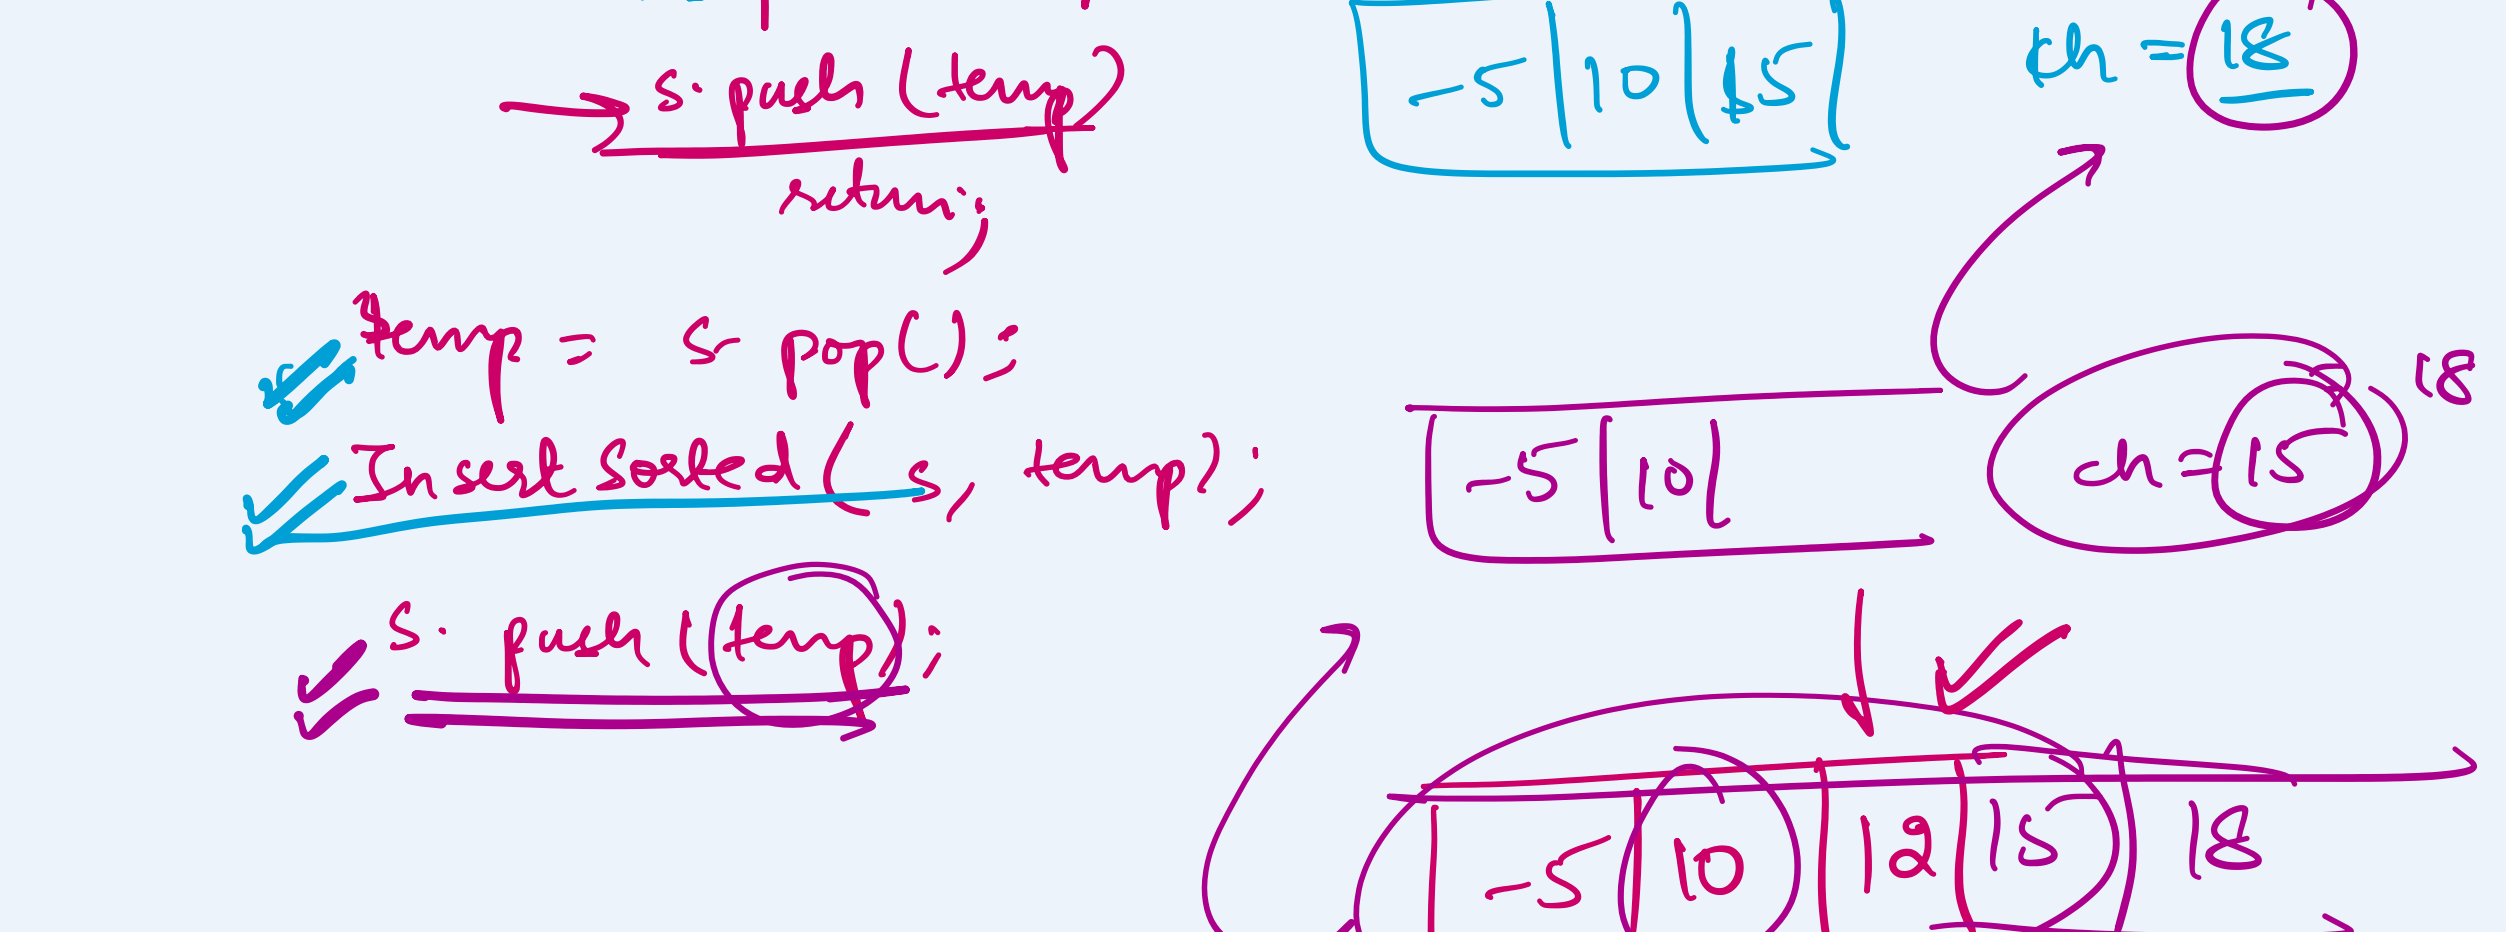 s. push (temp)
return;
temp = s. pop();
Insert Sorted (s, temp);
s. push (temp);
-5 | 10 | 15
th = 18
-5 | 10
th = 15
18
-5 | 10 | 12 | 15 | 18